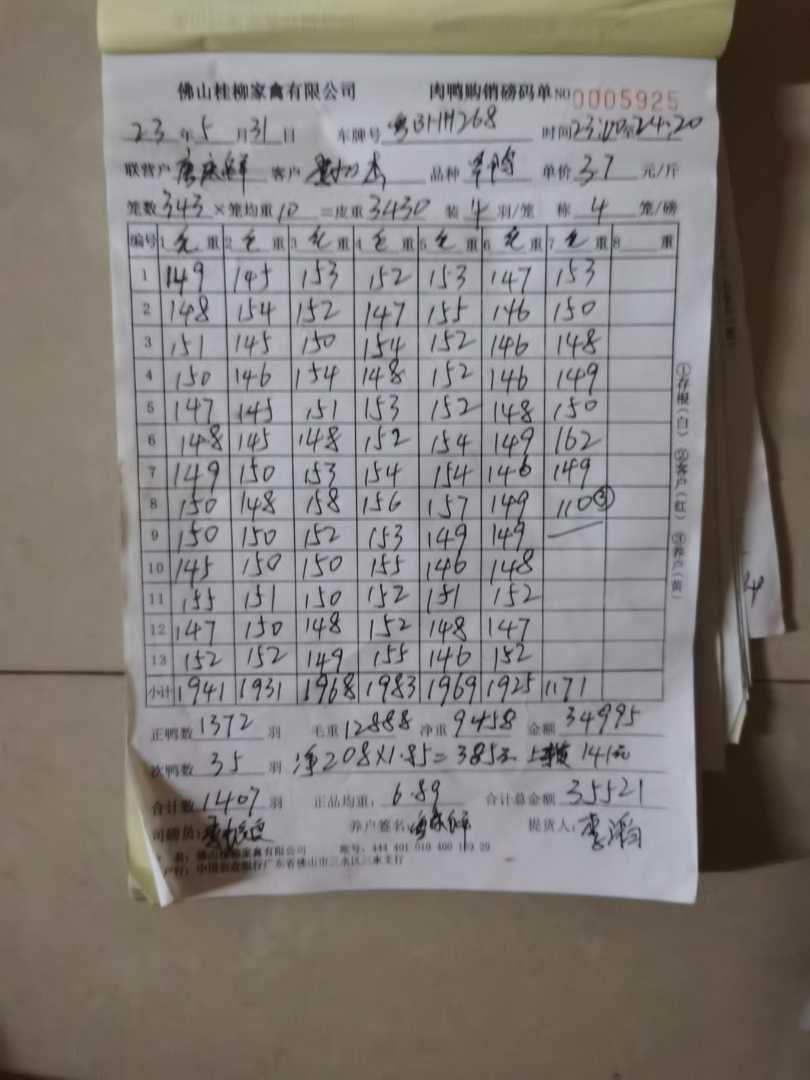 佛山桂柳家禽有限公司 肉鸭购销磅码单 NO 0005925
23 年 5 月 31 日 车牌号 268 时间 23:00 24:20
联营户 客户 品种 单价 3.7 元/斤
笼数 343 × 笼均重 10 = 皮重 3430 装 4 羽/笼 称 4 笼/磅
编号 1 毛 重 2 毛 重 3 毛 重 4 毛 重 5 毛 重 6 毛 重 7 毛 重 8 重
1 149 145 153 152 153 147 153
2 148 154 152 147 155 146 150
3 151 145 150 154 152 146 148
4 150 146 154 148 152 146 149
5 147 145 151 153 152 148 150
6 148 145 148 152 154 149 162
7 149 150 153 154 154 146 149
8 150 148 158 156 157 149 110③
9 150 150 152 153 149 149
10 145 150 150 155 146 148
11 155 151 150 152 151 152
12 147 150 148 152 148 147
13 152 152 149 155 146 152
小计 1941 1931 1968 1983 1969 1925 1171
正鸭数 1372 羽 毛重 12888 净重 9458 金额 34995
次鸭数 35 羽 净208×1.85=385元 141元
合计数 1407 羽 正品均重: 6.89 合计总金额 35521
司磅员: 养户签名: 提货人:
名: 佛山桂柳家禽有限公司 账号: 444 401 010 400
户行: 中国农业银行广东省佛山市三水区三水支行
①存根(白) ②客户(红) ③养户(黄)